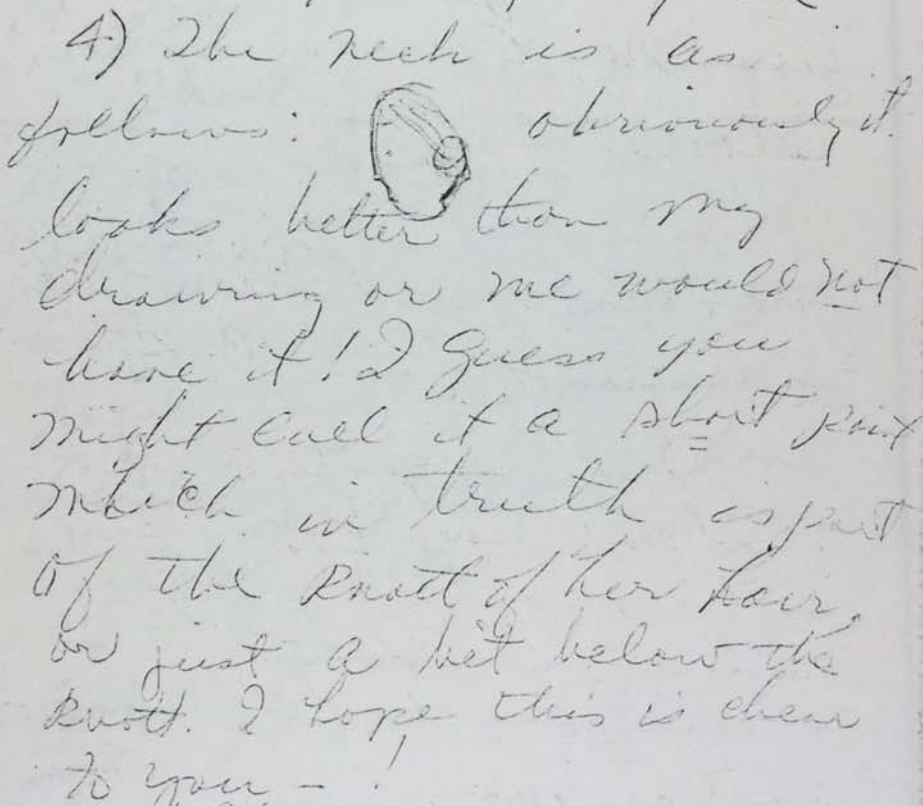 4) The neck is as
follows: obvriouously it
looks better than my
drawing or me would not
have it! I guess you
might call it a short point
which in truth is part
of the Knott of her hair,
or just a bit below the
Knott. I hope this is clear
to you - !